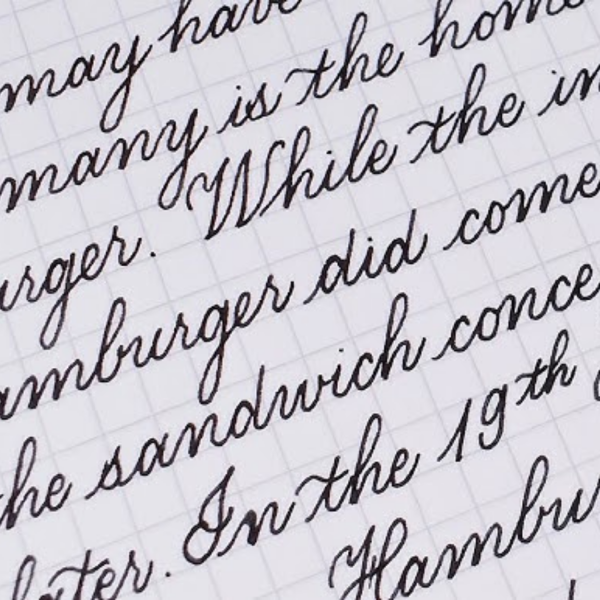 may have
many is the home
urger. While the in
amburger did come
the sandwich conce
later. In the 19th
Hambu